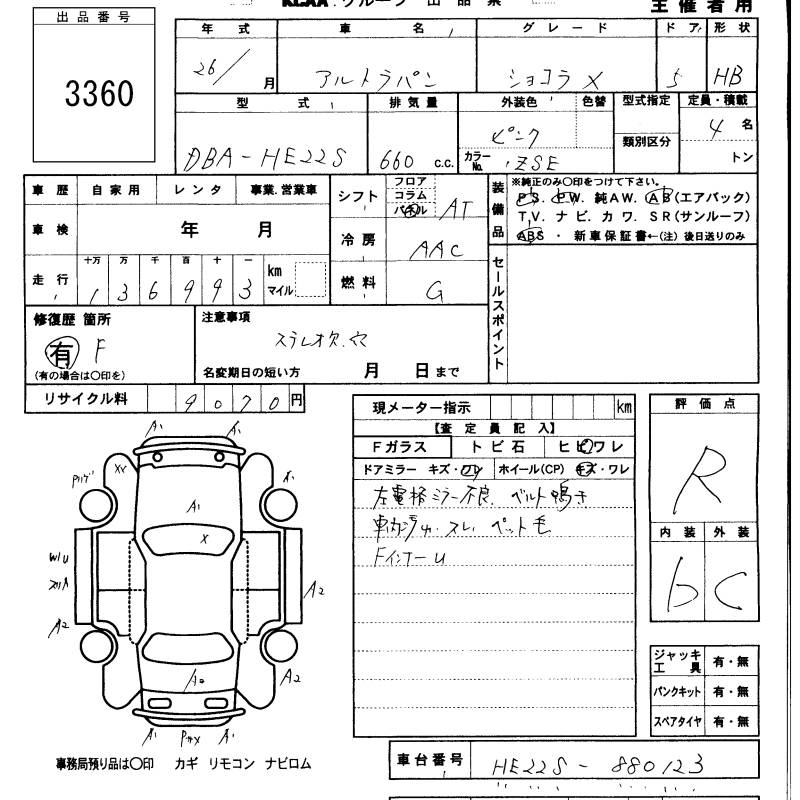 KCAA グループ 出品票
主催者用
出品番号
3360
年式 車名 グレード ドア 形状
26/ 月 アルトラパン ショコラ X 5 HB
型式 排気量 外装色 色替 型式指定 定員・積載
DBA-HE22S 660 c.c. ピンク 類別区分 4 名
カラーNo. ZSE トン
車歴 自家用 レンタ 事業.営業車
車検 年 月
走行 十万 万 千 百 十 一 km マイル
1 3 6 9 9 3
シフト フロア コラム パネル AT
冷房 AAC
燃料 G
装備品
※純正のみ〇印をつけて下さい。
P.S. P.W. 純A.W. A.B(エアバック)
T.V. ナビ. カワ. S.R(サンルーフ)
ABS ・ 新車保証書←(注) 後日送りのみ
セールスポイント
修復歴 箇所
有 F
(有の場合は〇印を)
注意事項
ステレオ欠.穴
名変期日の短い方 月 日まで
リサイクル料 9070円
現メーター指示 km
【査定員記入】
Fガラス トビ石 ヒビワレ
ドアミラー キズ・ワレ ホイール(CP) キズ・ワレ
左電格ミラー不良. ベルト鳴き
車内ジゃ.スレ. ペット毛
FインナーU
評価点
R
内装 外装
b C
ジャッキ工具 有・無
パンクキット 有・無
スペアタイヤ 有・無
A1 A1
XX A1
A1
X
W/U
A2 A2
A2 A2
A1 A1
事務局預り品は〇印 カギ リモコン ナビロム
車台番号 HE22S-880123